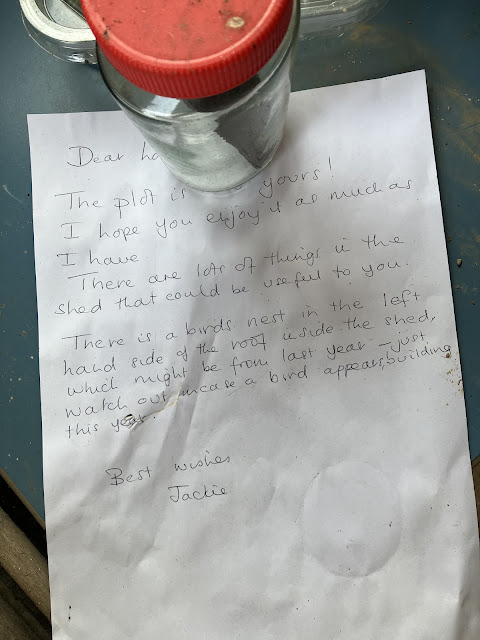 Dear
The plot is yours!
I hope you enjoy it as much as
I have
There are lots of things in the
shed that could be useful to you.
There is a birds nest in the left
hand side of the roof inside the shed,
which might be from last year - just
watch out incase a bird appears, building
this year.
Best wishes
Jackie